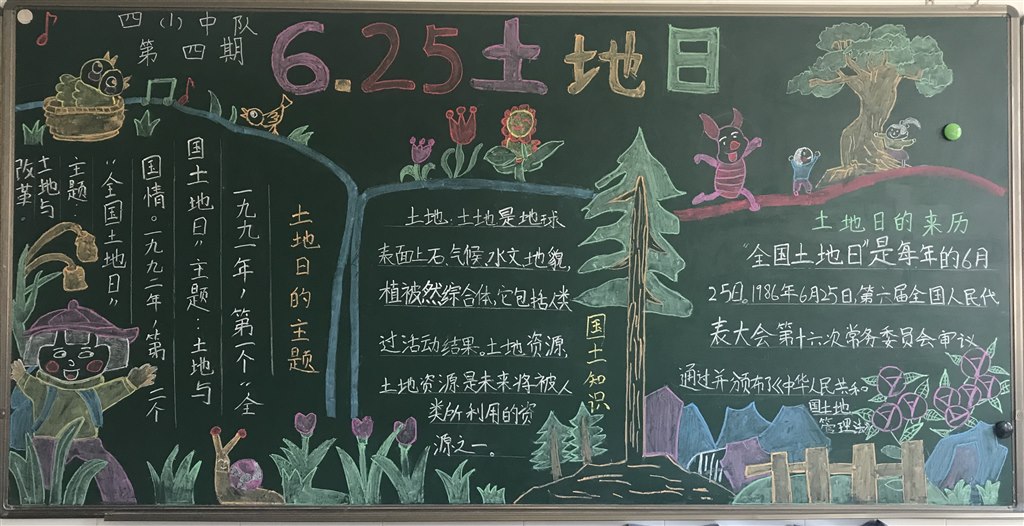 四(1)中队
第四期
6.25土地日
土地日的主题
一九九一年，第一个“全
国土地日”主题：土地与
国情。一九九二年“第二个
“全国土地日”
主题：
土地与
改革.
土地:土地是地球
表面上石,气候,水文,地貌,
植被然综合体,它包括人类
过活动结果。土地资源
土地资源是未来将被人
类所利用的资
源之一。
国土知识
土地日的来历
“全国土地日”是每年的6月
25日,1986年6月25日,第六届全国人民代
表大会第十六次常务委员会审议
通过并颁布了《中华人民共和。
国土地
管理法